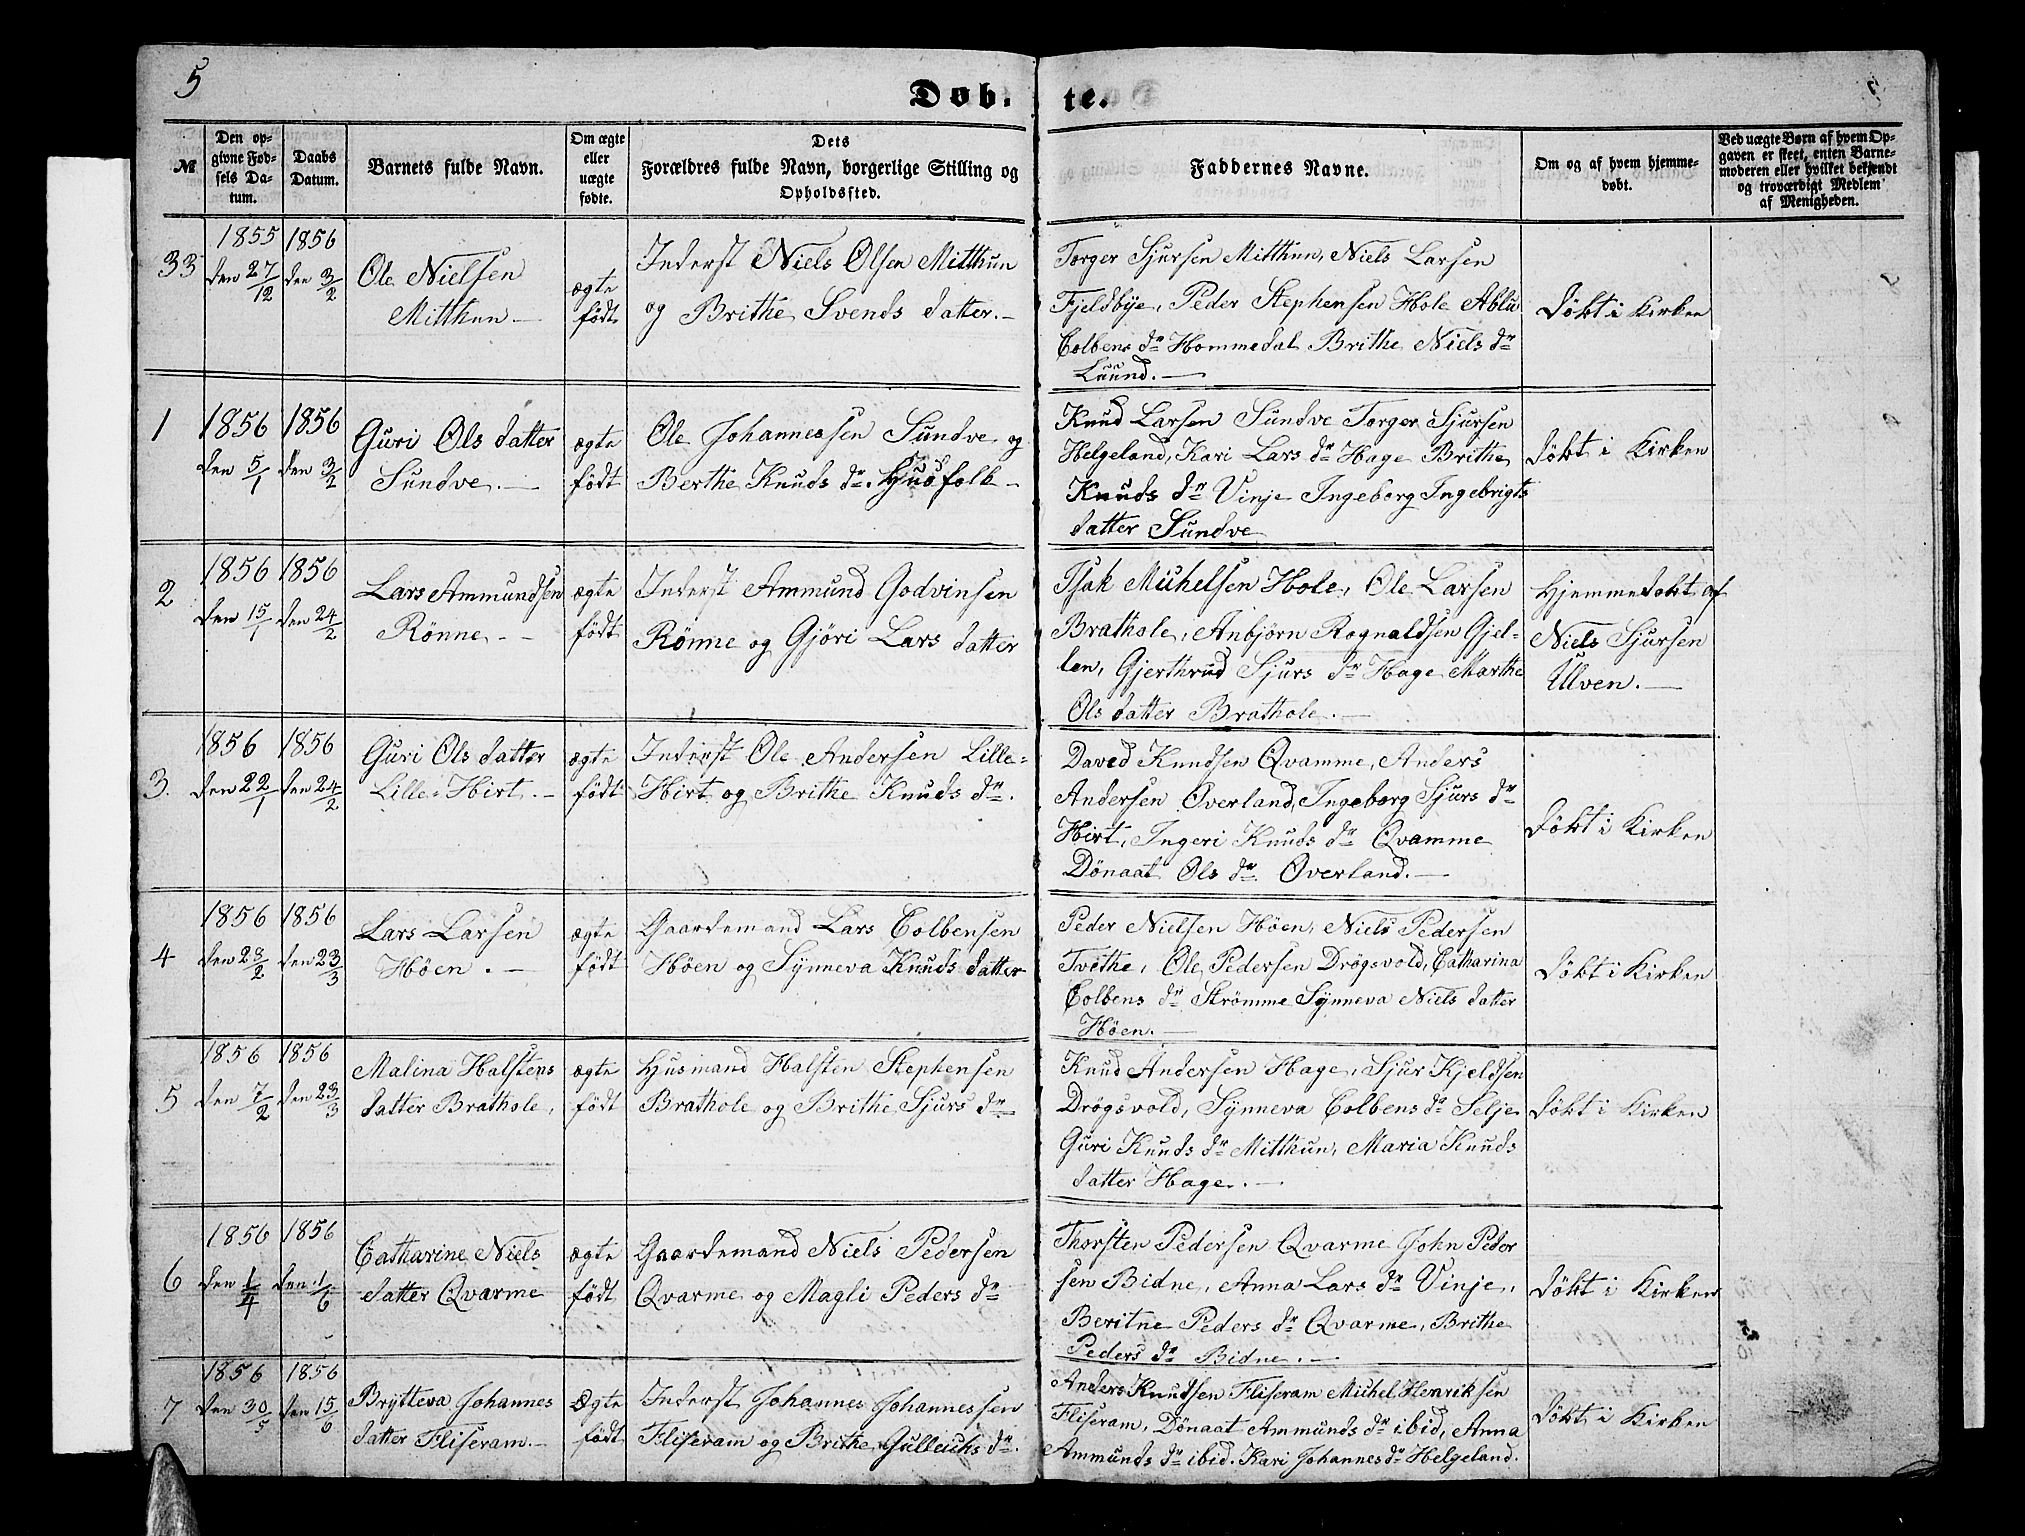 5
Døb. te.
№
Den op-
givne Fød-
sels Da-
tum.
Daabs
Datum.
Barnets fulde Navn.
Om ægte
eller
uægte
fødte.
Dets
Forældres fulde Navn, borgerlige Stilling og
Opholdssted.
Faddernes Navne.
Om og af hvem hjemme-
døbt.
Ved uægte Børn af hvem Op-
gaven er skeet, enten Barne-
moderen eller hvilket bekjendt
og troværdigt Medlem
af Menigheden.
33
1855
den 27/12
1856
den 3/2
Ole Nielsen
Mitthun.-
ægte
født
Inderst Niels Olsen Mitthun
og Brithe Svends datter.-
Torger Sjursen Mitthun, Niels Larsen
Fjeldbye, Peder Stephensen Hole Ablu
Colbens dr Hommedal Brithe Niels dr
Luund.-
Døbt i Kirken
1
1856
den 5/1
1856
den 3/2
Guri Ols datter
Sundve.-
ægte
født
Ole Johannessen Sundve og
Berthe Knuds dr. Husfolk-
Knud Larsen Sundve Torger Sjursen
Helgeland, Kari Lars dr Hage Brithe
Knuds dr Vinje Ingeborg Ingebrigts
datter Sundve
Døbt i Kirken
2
1856
den 15/1
1856
den 24/2
Lars Ammundsen
Rönne.-
ægte
født
Inderst Ammund Godvinsen
Rönne og Gjöri Lars datter
Isak Michelsen Hole, Ole Larsen
Brathole, Anbjörn Rognaldsen Gjel-
len, Gjerthrud Sjurs dr Hage Marthe
Ols datter Brathole.-
Hjemmedøbt af
Niels Sjursen
Ulven.-
3.
1856
den 22/1
1856
den 24/2
Guri Ols datter
Lille-Hirt.-
ægte
født
Inderst Ole Andersen Lille-
Hirt og Brithe Knuds dr.
David Knudsen Qvamme, Anders
Andersen Överland, Ingeborg Sjurs dr
Hirt, Ingeri Knuds dr Qvamme
Dönaat Ols dr. Överland.-
Døbt i Kirken
4
1856
den 28/2
1856
den 23/3
Lars Larsen
Höen.-
ægte
født
Gaardemand Lars Colbensen
Höen og Synneva Knuds datter
Peder Nielsen Höen, Niels Pedersen
Tvethe, Ole Pedersen Drögsvold, Catharina
Colbens dr Strömme Synneva Niels datter
Höen.-
Døbt i Kirken
5
1856
den 7/2
1856
den 23/3
Malina Halstens
datter Brathole,
ægte
født
Husmand Halsten Stephensen
Brathole og Brithe Sjurs dr
Knud Andersen Hage, Sjur Kjeldsen
Drögsvold, Synneva Colbens dr Selje
Guri Knuds dr Mitthun, Maria Knuds
datter Hage.-
Døbt i Kirken
6
1856
den 1/4
1856
den 1/6
Catharine Niels
datter Qvarme
ægte
født
Gaardemand Niels Pedersen
Qvarme og Magli Peders dr
Thorsten Pedersen Qvarme John Peder
sen Bidne, Anna Lars dr Vinje,
Beritne Peders dr Qvarme, Brithe
Peders dr Bidne.-
Døbt i Kirken
7
1856
den 30/5
1856
den 15/6
Brytteva Johannes
datter Fliseram.-
Ægte
født
Inderst Johannes Johannessen
Fliseram og Brithe Gulleichs dr.
Anders Knudsen Fliseram Michel Henriksen
Fliseram, Dönaat Ammunds dr ibid, Anna
Ammunds dr ibid. Kari Johannes dr Helgeland.
Døbt i Kirken